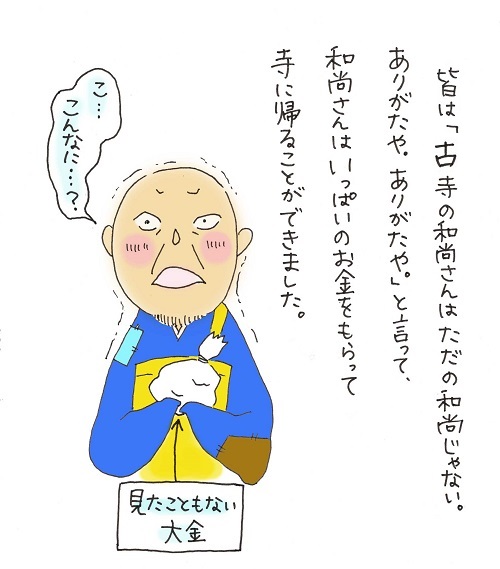 皆は「古寺の和尚さんはただの和尚じゃない。
ありがたや。ありがたや。」と言って、
和尚さんはいっぱいのお金をもらって
寺に帰ることができました。
こ…
こんなに…？
見たこともない
大金